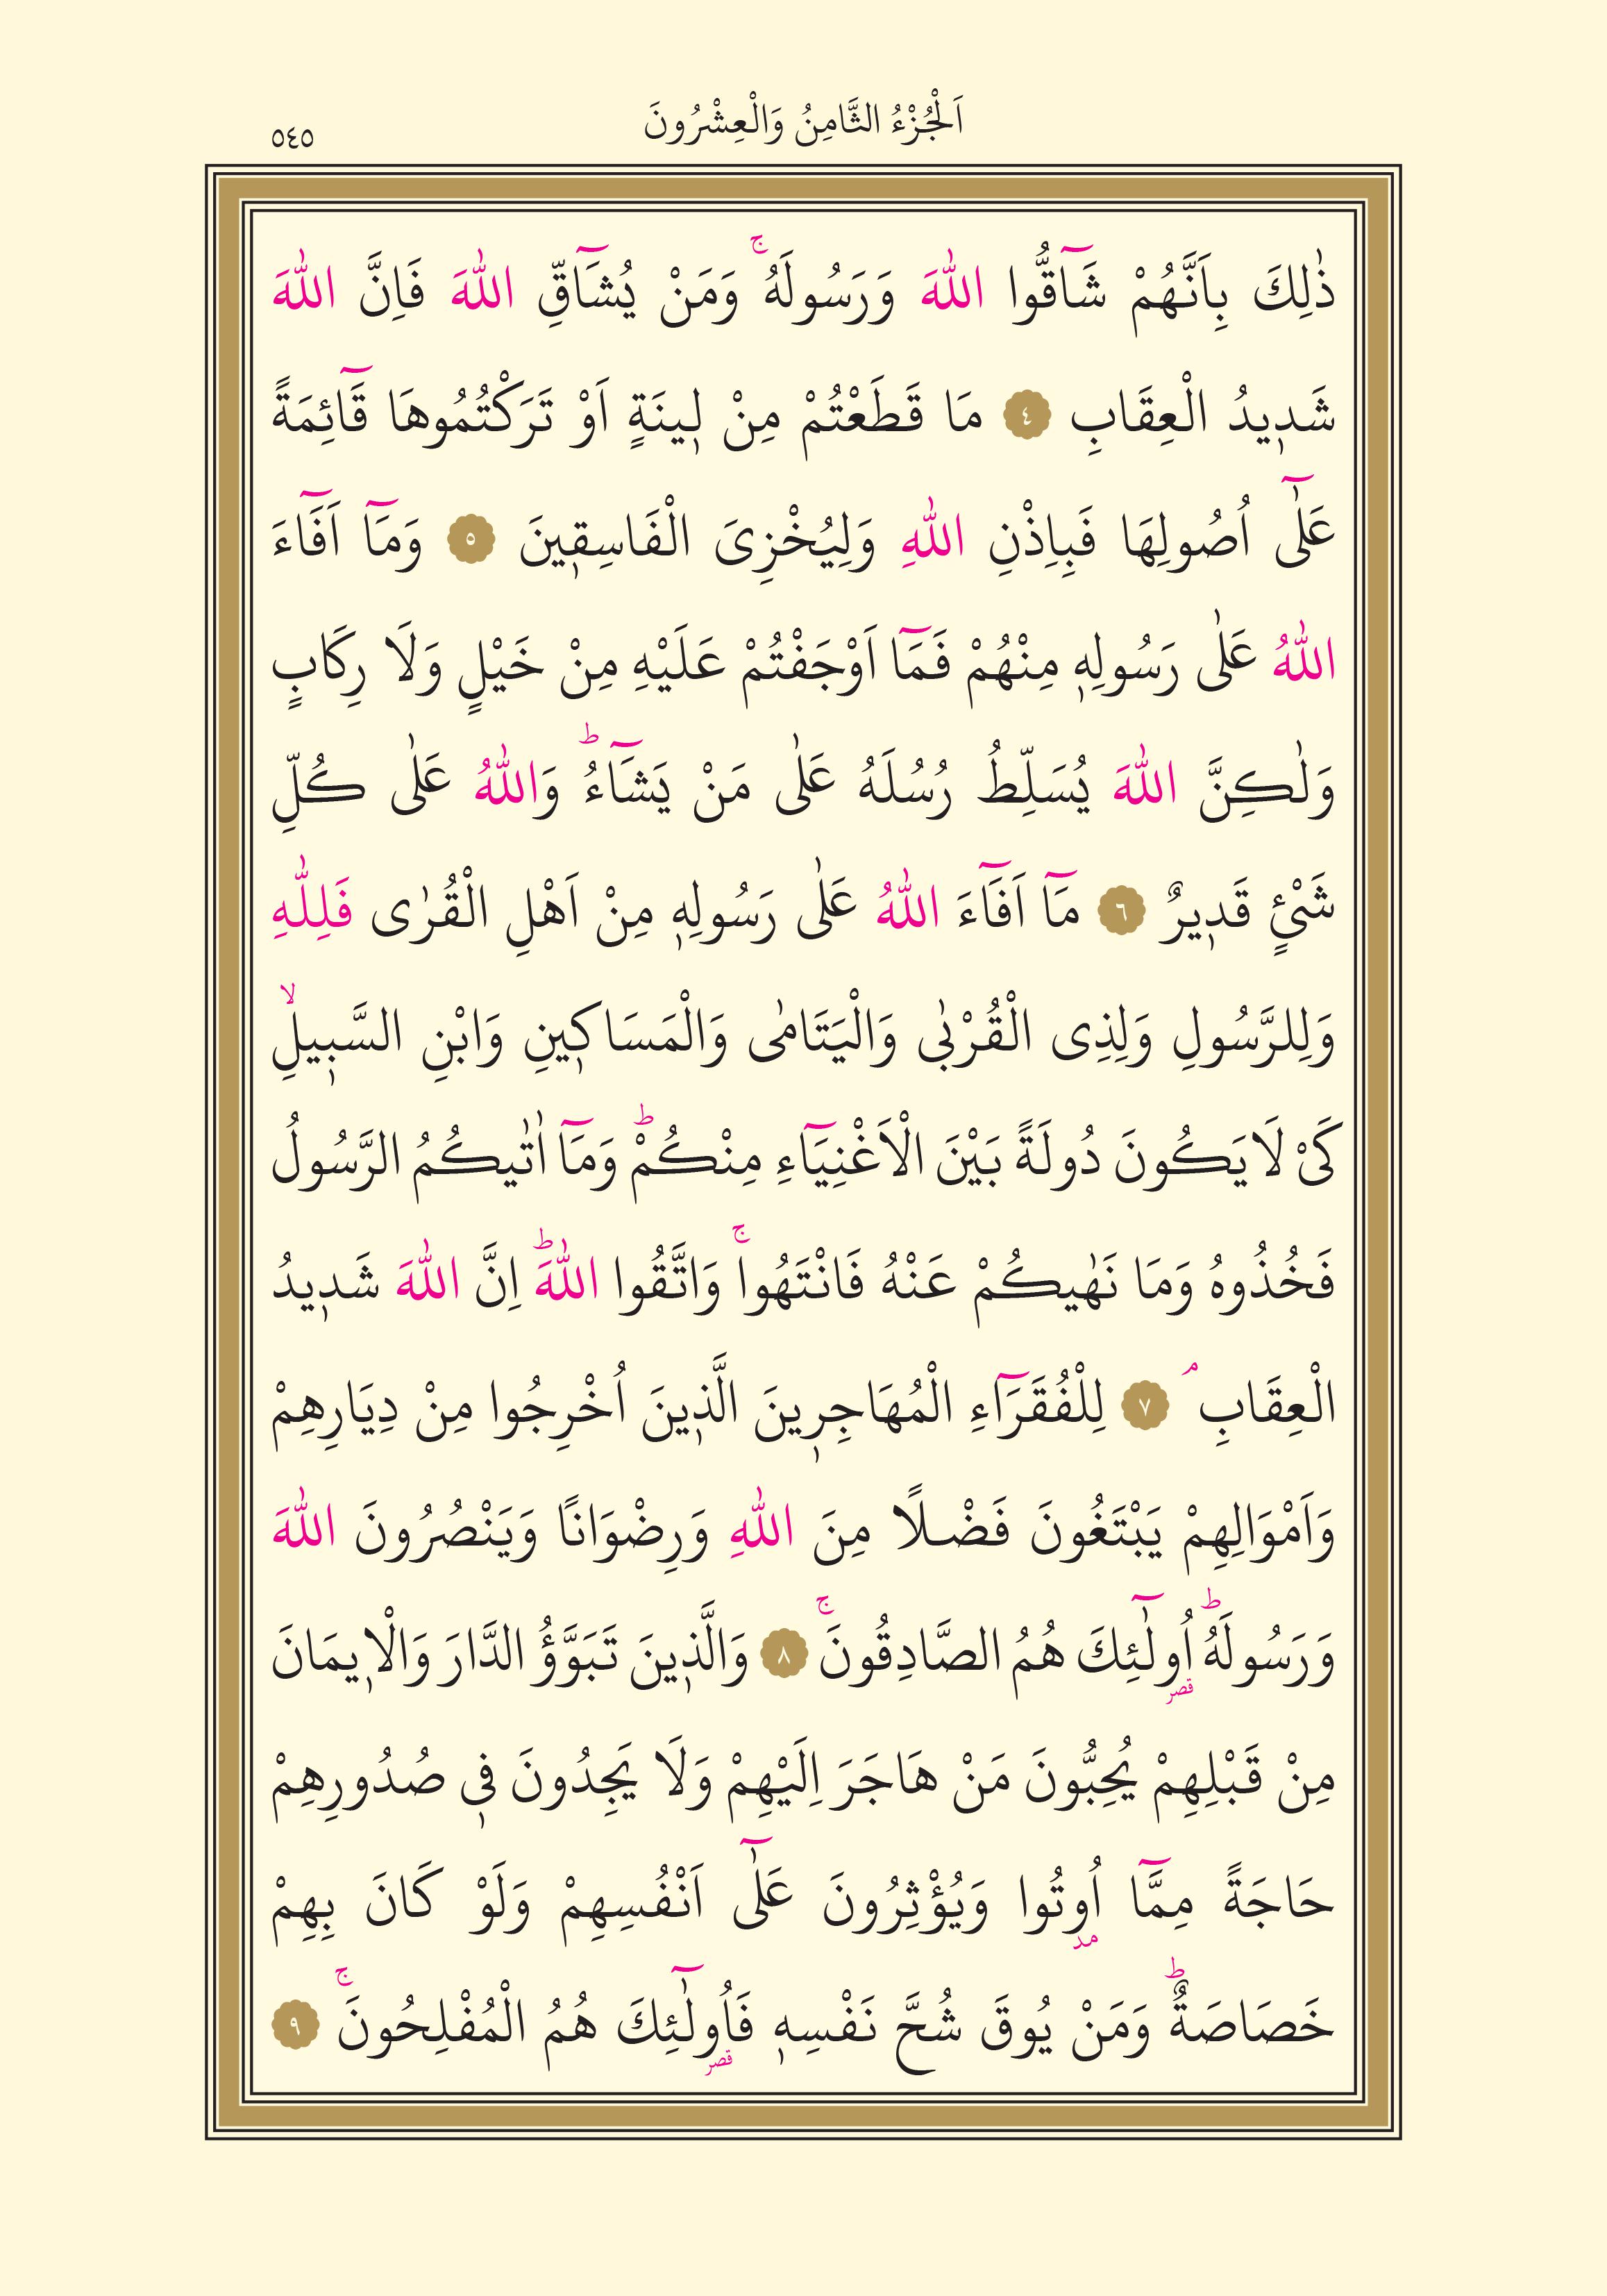 اَلْجُزْءُ الثَّامِنُ وَالْعِشْرُونَ
٥٤٥
ذٰلِكَ بِاَنَّهُمْ شَٓاقُّوا اللّٰهَ وَرَسُولَهُۚ وَمَنْ يُشَٓاقِّ اللّٰهَ فَاِنَّ اللّٰهَ
شَد۪يدُ الْعِقَابِ ٤ مَا قَطَعْتُمْ مِنْ ل۪ينَةٍ اَوْ تَرَكْتُمُوهَا قَٓائِمَةً
عَلٰٓى اُصُولِهَا فَبِاِذْنِ اللّٰهِ وَلِيُخْزِىَ الْفَاسِق۪ينَ ٥ وَمَٓا اَفَٓاءَ
اللّٰهُ عَلٰى رَسُولِه۪ مِنْهُمْ فَمَٓا اَوْجَفْتُمْ عَلَيْهِ مِنْ خَيْلٍ وَلَا رِكَابٍ
وَلٰكِنَّ اللّٰهَ يُسَلِّطُ رُسُلَهُ عَلٰى مَنْ يَشَٓاءُۜ وَاللّٰهُ عَلٰى كُلِّ
شَىْئٍ قَد۪يرٌ ٦ مَٓا اَفَٓاءَ اللّٰهُ عَلٰى رَسُولِه۪ مِنْ اَهْلِ الْقُرٰى فَلِلّٰهِ
وَلِلرَّسُولِ وَلِذِى الْقُرْبٰى وَالْيَتَامٰى وَالْمَسَاك۪ينِ وَابْنِ السَّب۪يلِۙ
كَىْ لَا يَكُونَ دُولَةً بَيْنَ الْاَغْنِيَٓاءِ مِنْكُمْۜ وَمَٓا اٰتٰيكُمُ الرَّسُولُ
فَخُذُوهُ وَمَا نَهٰيكُمْ عَنْهُ فَانْتَهُواۚ وَاتَّقُوا اللّٰهَۜ اِنَّ اللّٰهَ شَد۪يدُ
الْعِقَابِۢ ٧ لِلْفُقَرَٓاءِ الْمُهَاجِر۪ينَ الَّذ۪ينَ اُخْرِجُوا مِنْ دِيَارِهِمْ
وَاَمْوَالِهِمْ يَبْتَغُونَ فَضْلًا مِنَ اللّٰهِ وَرِضْوَانًا وَيَنْصُرُونَ اللّٰهَ
وَرَسُولَهُۜ اُولٰٓئِكَ هُمُ الصَّادِقُونَۚ ٨ وَالَّذ۪ينَ تَبَوَّؤُ الدَّارَ وَالْا۪يمَانَ
قصر
مِنْ قَبْلِهِمْ يُحِبُّونَ مَنْ هَاجَرَ اِلَيْهِمْ وَلَا يَجِدُونَ ف۪ى صُدُورِهِمْ
حَاجَةً مِمَّٓا اُوتُوا وَيُؤْثِرُونَ عَلٰٓى اَنْفُسِهِمْ وَلَوْ كَانَ بِهِمْ
مد
خَصَاصَةٌۜ وَمَنْ يُوقَ شُحَّ نَفْسِه۪ فَاُولٰٓئِكَ هُمُ الْمُفْلِحُونَۚ ٩
قصر